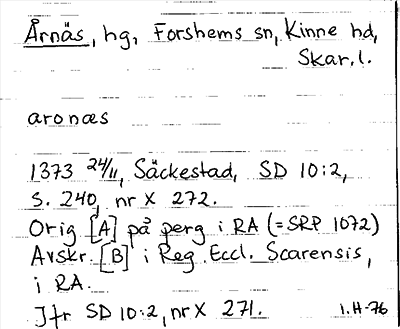 Årnäs, hg, Forshems sn, Kinne hd,
Skar. l.
aronæs
1373 24/11, Säckestad, SD 10:2,
s. 240, nr X 272.
Orig [A] på perg i RA (=SRP 1072)
Avskr. [B] i Reg. Eccl. Scarensis,
i RA.
Jfr SD 10:2, nr X 271. I.H-76